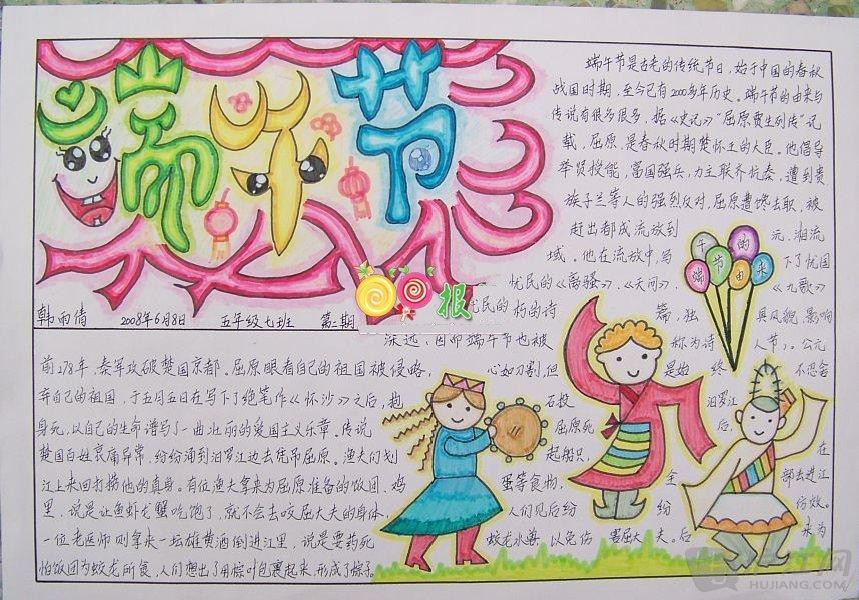 端午节
端午节是古老的传统节日,始于中国的春秋
战国时期,至今已有2000多年历史。端午节的由来与
传说有很多很多,据《史记》"屈原贾生列传"记
载,屈原,是春秋时期楚怀王的大臣。他倡导
举贤授能,富国强兵,力主联齐抗秦,遭到贵
族子兰等人的强烈反对,屈原遭馋去职,被
赶出都城流放到 元、湘流
域。他在流放中,写 下了忧国
忧民的《离骚》、《天问》、 《九歌》
篇,独 具风貌,影响
深远,因而端午节也被 称为诗 人节)。公元
午 的
端 节 由 来
报
韩雨倩 2008年6月8日 五年级七班 第二期
前278年,秦军攻破楚国京都。屈原眼看自己的祖国被侵略, 心如刀割,但 是始 终 不忍舍
弃自己的祖国,于五月五日在写下了绝笔作《怀沙》之后,抱 石投 汨罗江
身死,以自己的生命谱写了一曲壮丽的爱国主义乐章。传说 屈原死 后,
楚国百姓哀痛异常,纷纷涌到汨罗江边去凭吊屈原。渔夫们划 起船只, 在
江上来回打捞他的真身。有位渔夫拿来为屈原准备的饭团、鸡 蛋等食物, 全 部丢进江
里,说是让鱼虾龙蟹吃饱了,就不会去咬屈大夫的身体, 人们见后纷 纷 仿效。
一位老医师则拿来一坛雄黄酒倒进江里,说是要药死 蛟龙水兽,以免伤 害屈大夫。后 来为
怕饭团为蛟龙所食,人们想出了用粽叶包裹起来,形成了粽子。
HUJIANG.COM